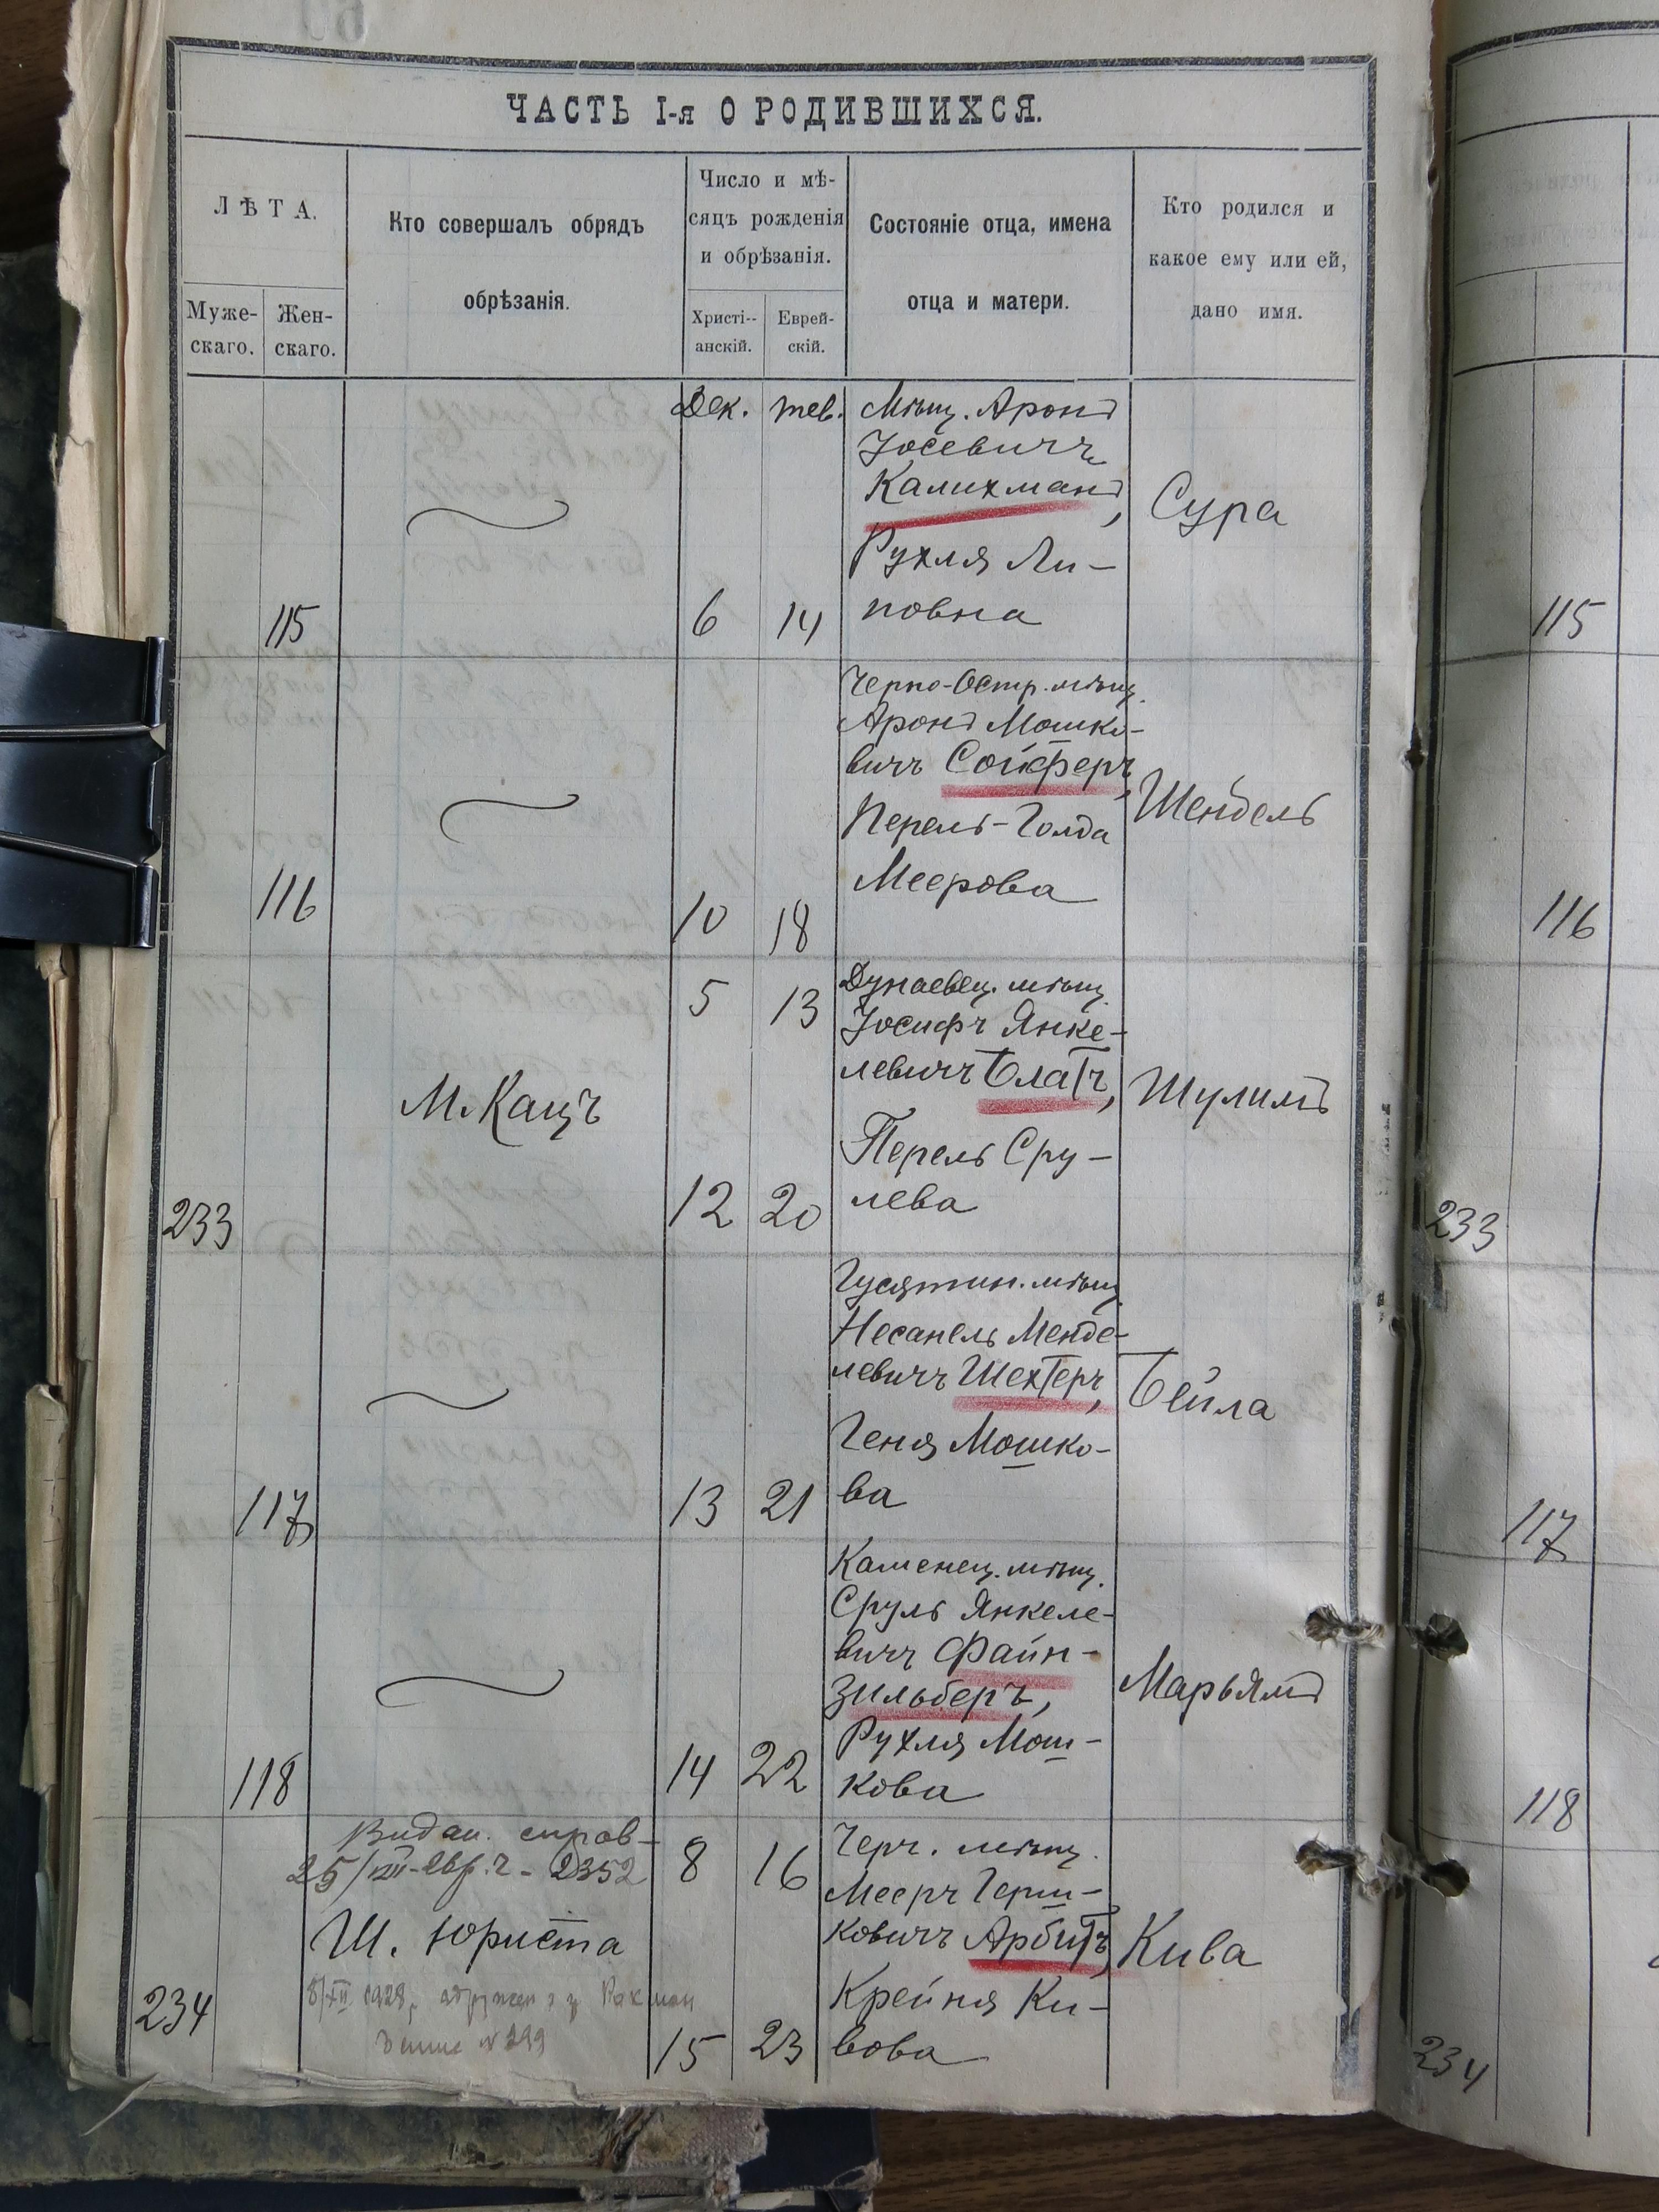 ЧАСТЬ I-я О РОДИВШИХСЯ.
ЛѢТА.
Муже-
скаго.
Жен-
скаго.
Кто совершалъ обрядъ
обрѣзанія.
Число и мѣ-
сяцъ рожденія
и обрѣзанія.
Христі--
анскій.
Еврей-
скій.
Состояніе отца, имена
отца и матери.
Кто родился и
какое ему или ей,
дано имя.
Дек. тев.
Мѣщ. Аронъ
Іосевичъ
Калихманъ,
Рухля Ли-
повна
Сура
115 6 14
115
Черно-Остр. мѣщ.
Аронъ Мошко-
вичъ Сойферъ,
Перель-Голда
Меерова
Шендель
116 10 18
116
5 13
Дунаевец. мѣщ.
Іосифъ Янке-
левичъ Блатъ,
Перель Сру-
лева
М. Кацъ
Шулимъ
233 12 20
233
Гусятин. мѣщ.
Несанель Менде-
левичъ Шехтеръ,
Геня Мошко-
ва
Бейла
117 13 21
117
Каменец. мѣщ.
Сруль Янкеле-
вичъ Файн-
зильберъ,
Рухля Мош-
кова
Марьямъ
118 14 22
118
Видан. справ-
25/XII 2352
Ш. Юриста
8/XII 1928
№ 299
8 16
Черн. мѣщ.
Мееръ Герш-
ковичъ Арбитъ,
Крейня Ки-
вова
Кива
234 15 23
234